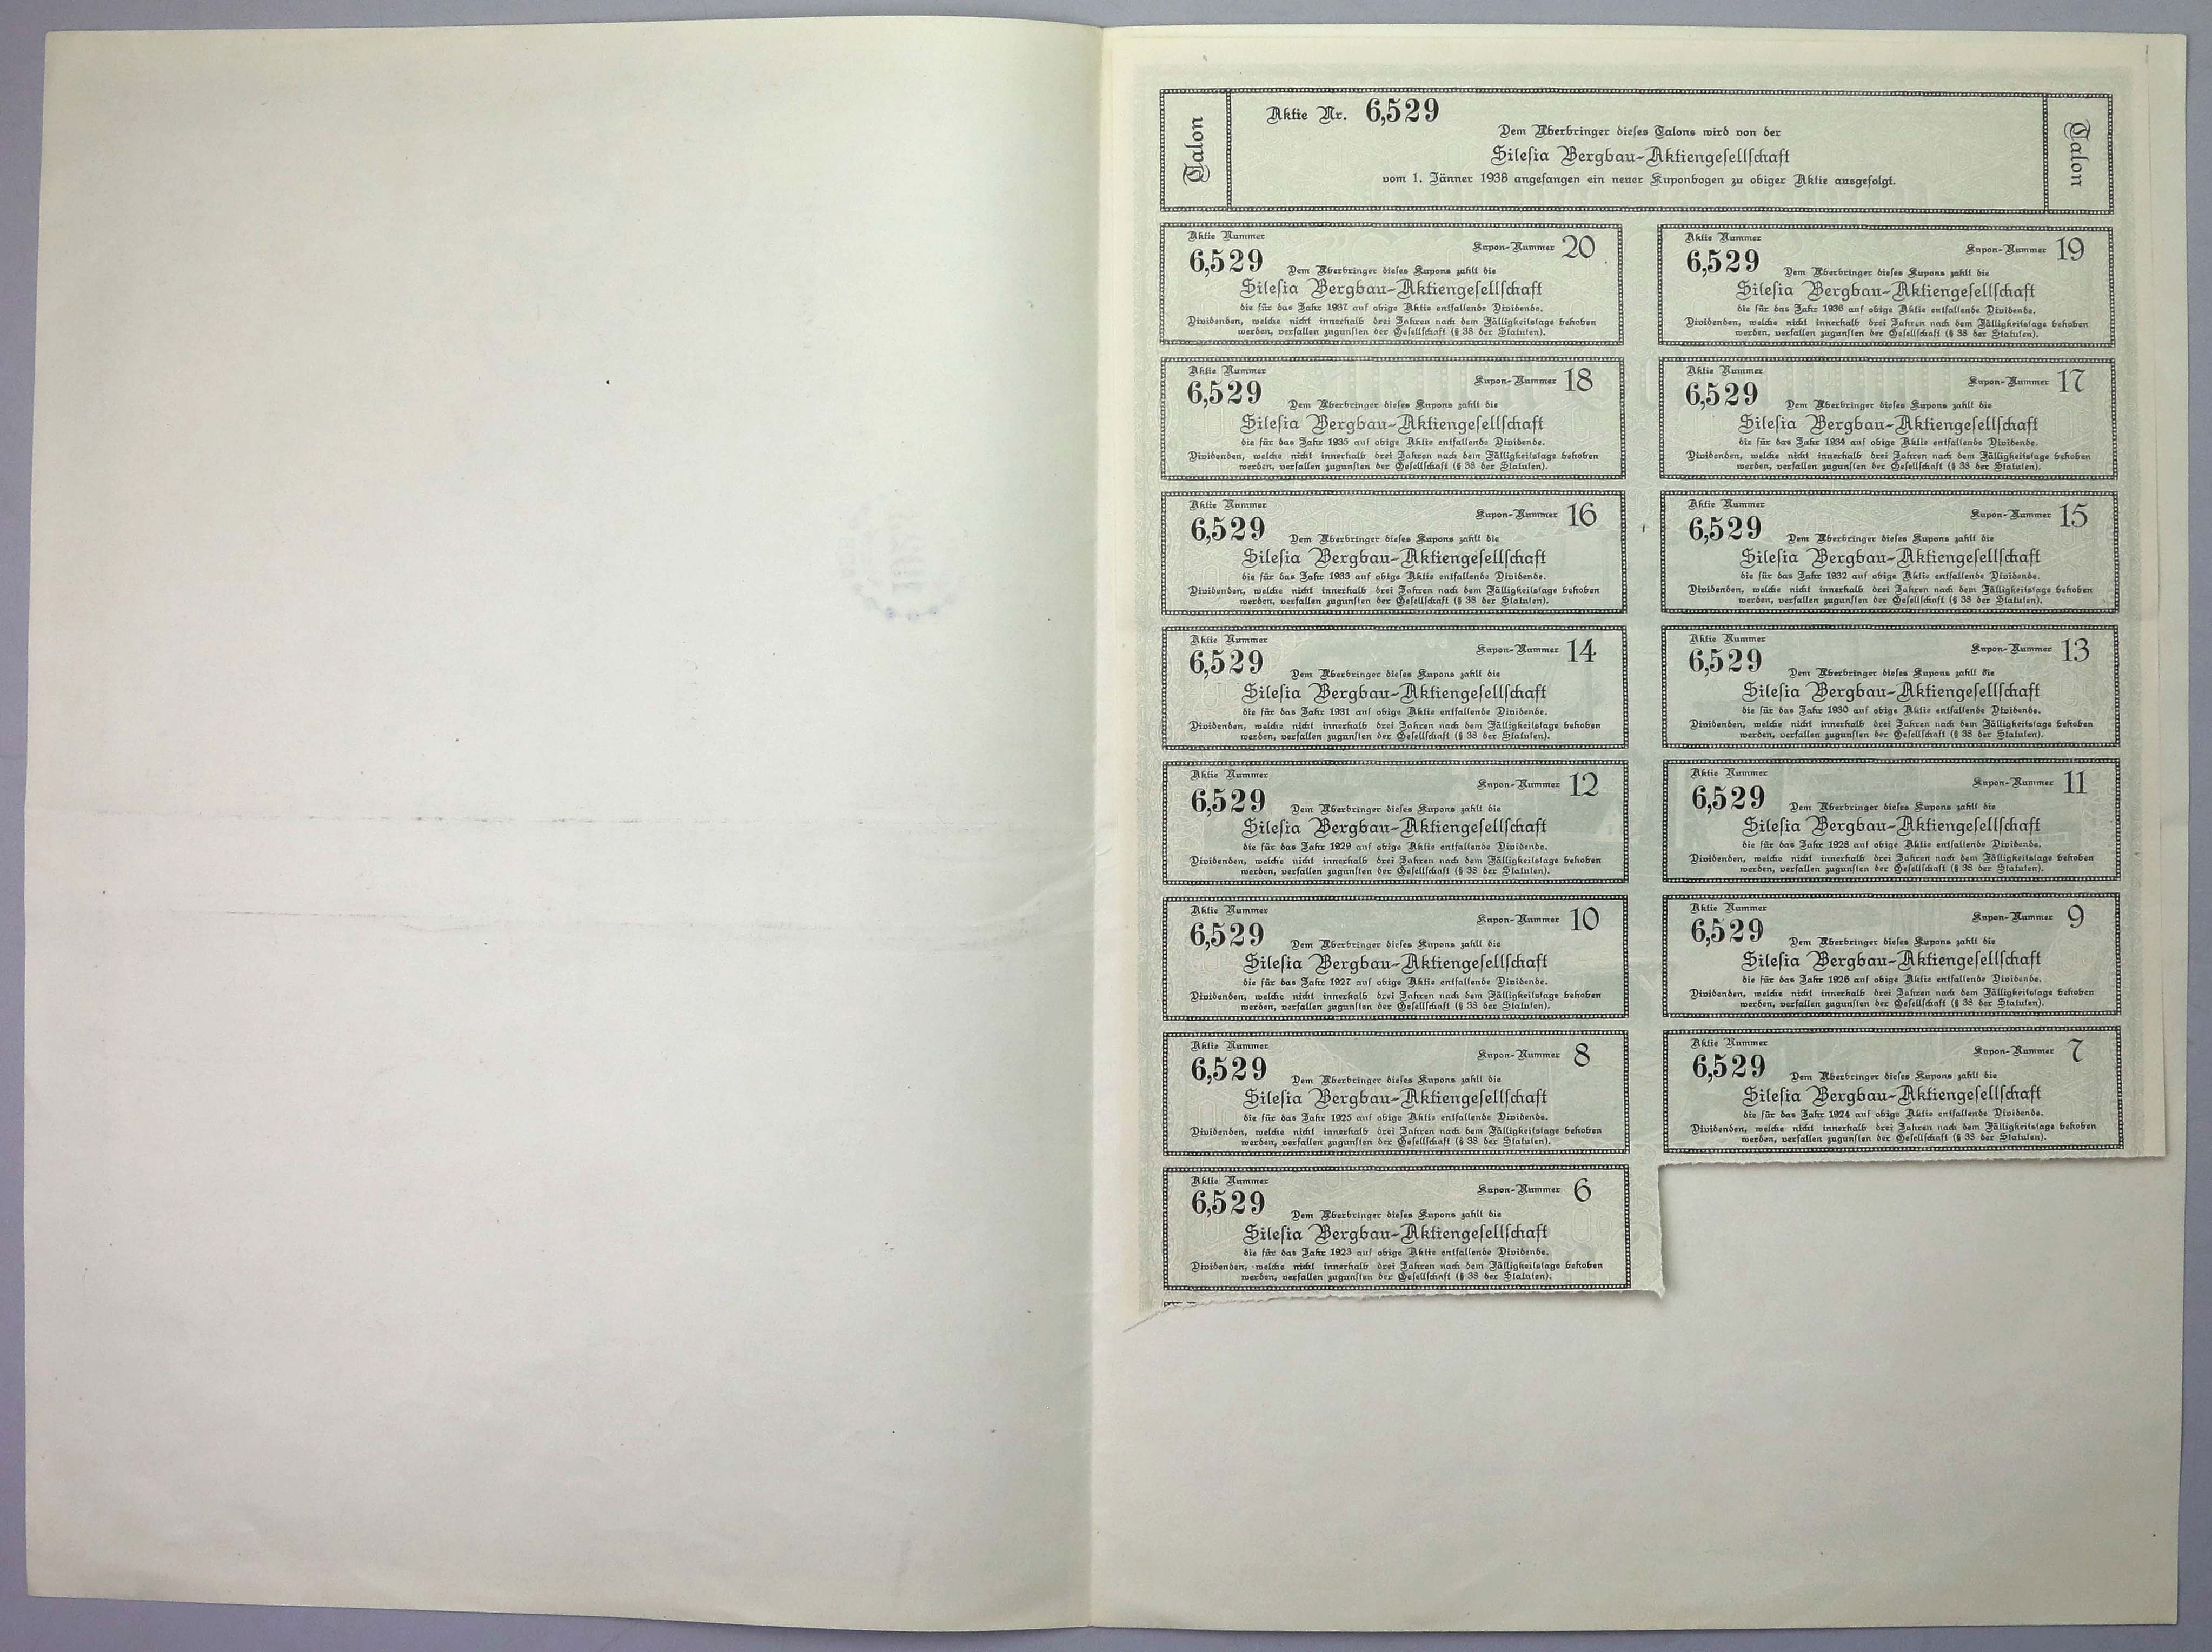 Talon
Aktie Nr. 6,529
Dem Überbringer dieses Talons wird von der
Silesia Bergbau-Aktiengesellschaft
vom 1. Jänner 1938 angefangen ein neuer Kuponbogen zu obiger Aktie ausgefolgt.
Talon
Aktie Nummer
6,529
Kupon-Nummer 20
Dem Überbringer dieses Kupons zahlt die
Silesia Bergbau-Aktiengesellschaft
die für das Jahr 1937 auf obige Aktie entfallende Dividende.
Dividenden, welche nicht innerhalb drei Jahren nach dem Fälligkeitstage behoben
werden, verfallen zugunsten der Gesellschaft (§ 38 der Statuten).
Aktie Nummer
6,529
Kupon-Nummer 19
Dem Überbringer dieses Kupons zahlt die
Silesia Bergbau-Aktiengesellschaft
die für das Jahr 1936 auf obige Aktie entfallende Dividende.
Dividenden, welche nicht innerhalb drei Jahren nach dem Fälligkeitstage behoben
werden, verfallen zugunsten der Gesellschaft (§ 38 der Statuten).
Aktie Nummer
6,529
Kupon-Nummer 18
Dem Überbringer dieses Kupons zahlt die
Silesia Bergbau-Aktiengesellschaft
die für das Jahr 1935 auf obige Aktie entfallende Dividende.
Dividenden, welche nicht innerhalb drei Jahren nach dem Fälligkeitstage behoben
werden, verfallen zugunsten der Gesellschaft (§ 38 der Statuten).
Aktie Nummer
6,529
Kupon-Nummer 17
Dem Überbringer dieses Kupons zahlt die
Silesia Bergbau-Aktiengesellschaft
die für das Jahr 1934 auf obige Aktie entfallende Dividende.
Dividenden, welche nicht innerhalb drei Jahren nach dem Fälligkeitstage behoben
werden, verfallen zugunsten der Gesellschaft (§ 38 der Statuten).
Aktie Nummer
6,529
Kupon-Nummer 16
Dem Überbringer dieses Kupons zahlt die
Silesia Bergbau-Aktiengesellschaft
die für das Jahr 1933 auf obige Aktie entfallende Dividende.
Dividenden, welche nicht innerhalb drei Jahren nach dem Fälligkeitstage behoben
werden, verfallen zugunsten der Gesellschaft (§ 38 der Statuten).
Aktie Nummer
6,529
Kupon-Nummer 15
Dem Überbringer dieses Kupons zahlt die
Silesia Bergbau-Aktiengesellschaft
die für das Jahr 1932 auf obige Aktie entfallende Dividende.
Dividenden, welche nicht innerhalb drei Jahren nach dem Fälligkeitstage behoben
werden, verfallen zugunsten der Gesellschaft (§ 38 der Statuten).
Aktie Nummer
6,529
Kupon-Nummer 14
Dem Überbringer dieses Kupons zahlt die
Silesia Bergbau-Aktiengesellschaft
die für das Jahr 1931 auf obige Aktie entfallende Dividende.
Dividenden, welche nicht innerhalb drei Jahren nach dem Fälligkeitstage behoben
werden, verfallen zugunsten der Gesellschaft (§ 38 der Statuten).
Aktie Nummer
6,529
Kupon-Nummer 13
Dem Überbringer dieses Kupons zahlt die
Silesia Bergbau-Aktiengesellschaft
die für das Jahr 1930 auf obige Aktie entfallende Dividende.
Dividenden, welche nicht innerhalb drei Jahren nach dem Fälligkeitstage behoben
werden, verfallen zugunsten der Gesellschaft (§ 38 der Statuten).
Aktie Nummer
6,529
Kupon-Nummer 12
Dem Überbringer dieses Kupons zahlt die
Silesia Bergbau-Aktiengesellschaft
die für das Jahr 1929 auf obige Aktie entfallende Dividende.
Dividenden, welche nicht innerhalb drei Jahren nach dem Fälligkeitstage behoben
werden, verfallen zugunsten der Gesellschaft (§ 38 der Statuten).
Aktie Nummer
6,529
Kupon-Nummer 11
Dem Überbringer dieses Kupons zahlt die
Silesia Bergbau-Aktiengesellschaft
die für das Jahr 1928 auf obige Aktie entfallende Dividende.
Dividenden, welche nicht innerhalb drei Jahren nach dem Fälligkeitstage behoben
werden, verfallen zugunsten der Gesellschaft (§ 38 der Statuten).
Aktie Nummer
6,529
Kupon-Nummer 10
Dem Überbringer dieses Kupons zahlt die
Silesia Bergbau-Aktiengesellschaft
die für das Jahr 1927 auf obige Aktie entfallende Dividende.
Dividenden, welche nicht innerhalb drei Jahren nach dem Fälligkeitstage behoben
werden, verfallen zugunsten der Gesellschaft (§ 38 der Statuten).
Aktie Nummer
6,529
Kupon-Nummer 9
Dem Überbringer dieses Kupons zahlt die
Silesia Bergbau-Aktiengesellschaft
die für das Jahr 1926 auf obige Aktie entfallende Dividende.
Dividenden, welche nicht innerhalb drei Jahren nach dem Fälligkeitstage behoben
werden, verfallen zugunsten der Gesellschaft (§ 38 der Statuten).
Aktie Nummer
6,529
Kupon-Nummer 8
Dem Überbringer dieses Kupons zahlt die
Silesia Bergbau-Aktiengesellschaft
die für das Jahr 1925 auf obige Aktie entfallende Dividende.
Dividenden, welche nicht innerhalb drei Jahren nach dem Fälligkeitstage behoben
werden, verfallen zugunsten der Gesellschaft (§ 38 der Statuten).
Aktie Nummer
6,529
Kupon-Nummer 7
Dem Überbringer dieses Kupons zahlt die
Silesia Bergbau-Aktiengesellschaft
die für das Jahr 1924 auf obige Aktie entfallende Dividende.
Dividenden, welche nicht innerhalb drei Jahren nach dem Fälligkeitstage behoben
werden, verfallen zugunsten der Gesellschaft (§ 38 der Statuten).
Aktie Nummer
6,529
Kupon-Nummer 6
Dem Überbringer dieses Kupons zahlt die
Silesia Bergbau-Aktiengesellschaft
die für das Jahr 1923 auf obige Aktie entfallende Dividende.
Dividenden, welche nicht innerhalb drei Jahren nach dem Fälligkeitstage behoben
werden, verfallen zugunsten der Gesellschaft (§ 38 der Statuten).